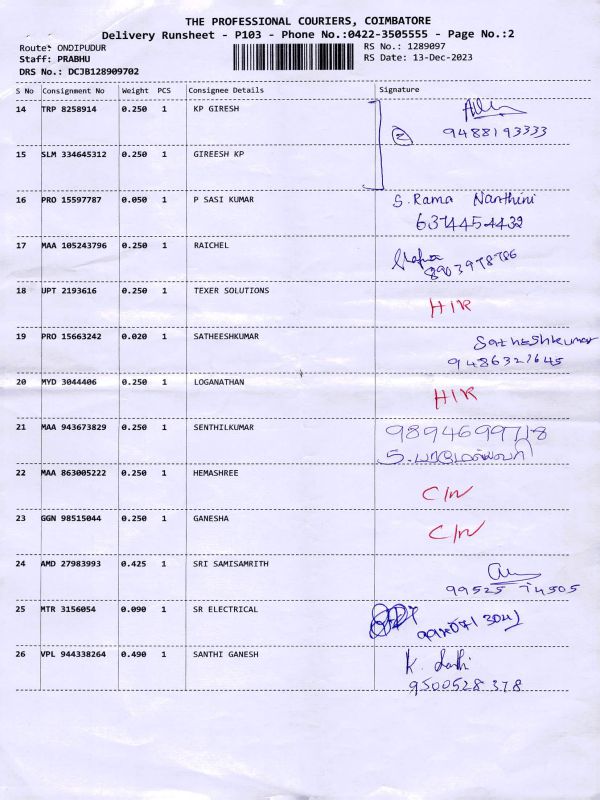 THE PROFESSIONAL COURIERS, COIMBATORE
Delivery Runsheet - P103 - Phone No.:0422-3505555 - Page No.:2
Route: ONDIPUDUR
RS No.: 1289097
Staff: PRABHU
RS Date: 13-Dec-2023
DRS No.: DCJB128909702
S No Consignment No Weight PCS Consignee Details Signature
14 TRP 8258914 0.250 1 KP GIRESH
② 9488193333
15 SLM 334645312 0.250 1 GIREESH KP
16 PRO 15597787 0.050 1 P SASI KUMAR S. Rama Nanthini
6374454432
17 MAA 105243796 0.250 1 RAICHEL
8903978786
18 UPT 2193616 0.250 1 TEXER SOLUTIONS HIR
19 PRO 15663242 0.020 1 SATHEESHKUMAR Satheshkumar
9486327645
20 MYD 3044406 0.250 1 LOGANATHAN HIR
21 MAA 943673829 0.250 1 SENTHILKUMAR 9894699718
22 MAA 863005222 0.250 1 HEMASHREE C/N
23 GGN 98515044 0.250 1 GANESHA C/N
24 AMD 27983993 0.425 1 SRI SAMISAMRITH
99525 14505
25 MTR 3156054 0.090 1 SR ELECTRICAL
26 VPL 944338264 0.490 1 SANTHI GANESH K.
9500528378